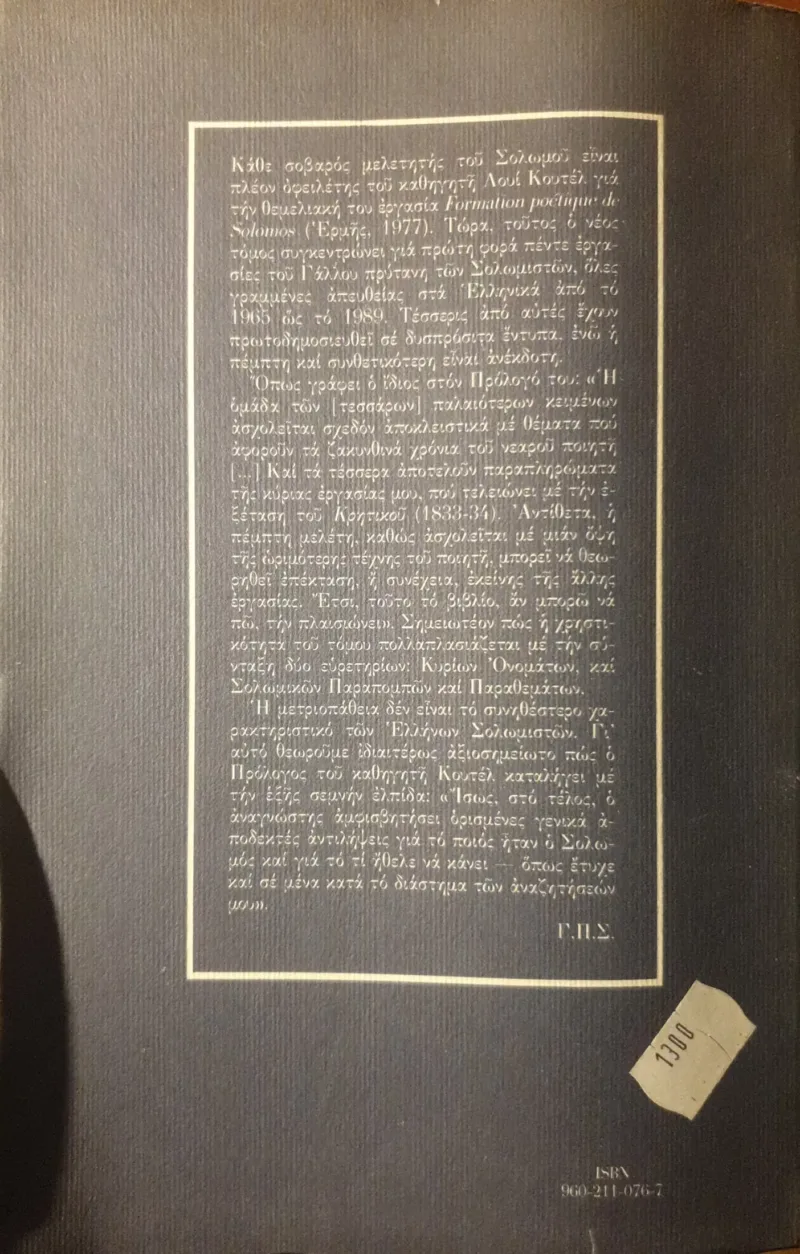 Κάθε σοβαρός μελετητής τοῦ Σολωμοῦ εἶναι
πλέον ὀφειλέτης τοῦ καθηγητῆ Λουί Κουτέλ γιά
τήν θεμελιακή του ἐργασία Formation poétique de
Solomos (Ἑρμῆς, 1977). Τώρα, τοῦτος ὁ νέος
τόμος συγκεντρώνει γιά πρώτη φορά πέντε ἐργα-
σίες τοῦ Γάλλου πρύτανη τῶν Σολωμιστῶν, ὅλες
γραμμένες ἀπευθείας στά Ἑλληνικά ἀπό τό
1965 ὥς τό 1989. Τέσσερις ἀπό αὐτές ἔχουν
πρωτοδημοσιευθεῖ σέ δυσπρόσιτα ἔντυπα, ἐνῶ ἡ
πέμπτη καί συνθετικότερη εἶναι ἀνέκδοτη.
Ὅπως γράφει ὁ ἴδιος στόν Πρόλογό του: «Ἡ
ὁμάδα τῶν [τεσσάρων] παλαιότερων κειμένων
ἀσχολεῖται σχεδόν ἀποκλειστικά μέ θέματα πού
ἀφοροῦν τά ζακυνθινά χρόνια τοῦ νεαροῦ ποιητῆ
[...] Καί τά τέσσερα ἀποτελοῦν παραπληρώματα
τῆς κύριας ἐργασίας μου, πού τελειώνει μέ τήν ἐ-
ξέταση τοῦ Κρητικοῦ (1833-34). Ἀντίθετα, ἡ
πέμπτη μελέτη, καθώς ἀσχολεῖται μέ μιάν ὄψη
τῆς ὡριμότερης τέχνης τοῦ ποιητῆ, μπορεῖ νά θεω-
ρηθεῖ ἐπέκταση, ἤ συνέχεια, ἐκείνης τῆς ἄλλης
ἐργασίας. Ἔτσι, τοῦτο τό βιβλίο, ἄν μπορῶ νά
πῶ, τήν πλαισιώνει». Σημειωτέον πώς ἡ χρηστι-
κότητα τοῦ τόμου πολλαπλασιάζεται μέ τήν σύ-
νταξη δύο εὑρετηρίων: Κυρίων Ὀνομάτων, καί
Σολωμικῶν Παραπομπῶν καί Παραθεμάτων.
Ἡ μετριοπάθεια δέν εἶναι τό συνηθέστερο χα-
ρακτηριστικό τῶν Ἑλλήνων Σολωμιστῶν. Γι'
αὐτό θεωροῦμε ἰδιαιτέρως ἀξιοσημείωτο πώς ὁ
Πρόλογος τοῦ καθηγητῆ Κουτέλ καταλήγει μέ
τήν ἑξῆς σεμνήν ἐλπίδα: «Ἴσως, στό τέλος, ὁ
ἀναγνώστης ἀμφισβητήσει ὁρισμένες γενικά ἀ-
ποδεκτές ἀντιλήψεις γιά τό ποιός ἦταν ὁ Σολω-
μός καί γιά τό τί ἤθελε νά κάνει — ὅπως ἔτυχε
καί σέ μένα κατά τό διάστημα τῶν ἀναζητήσεών
μου».
Γ.Π.Σ.
1300
ISBN
960-211-076-7